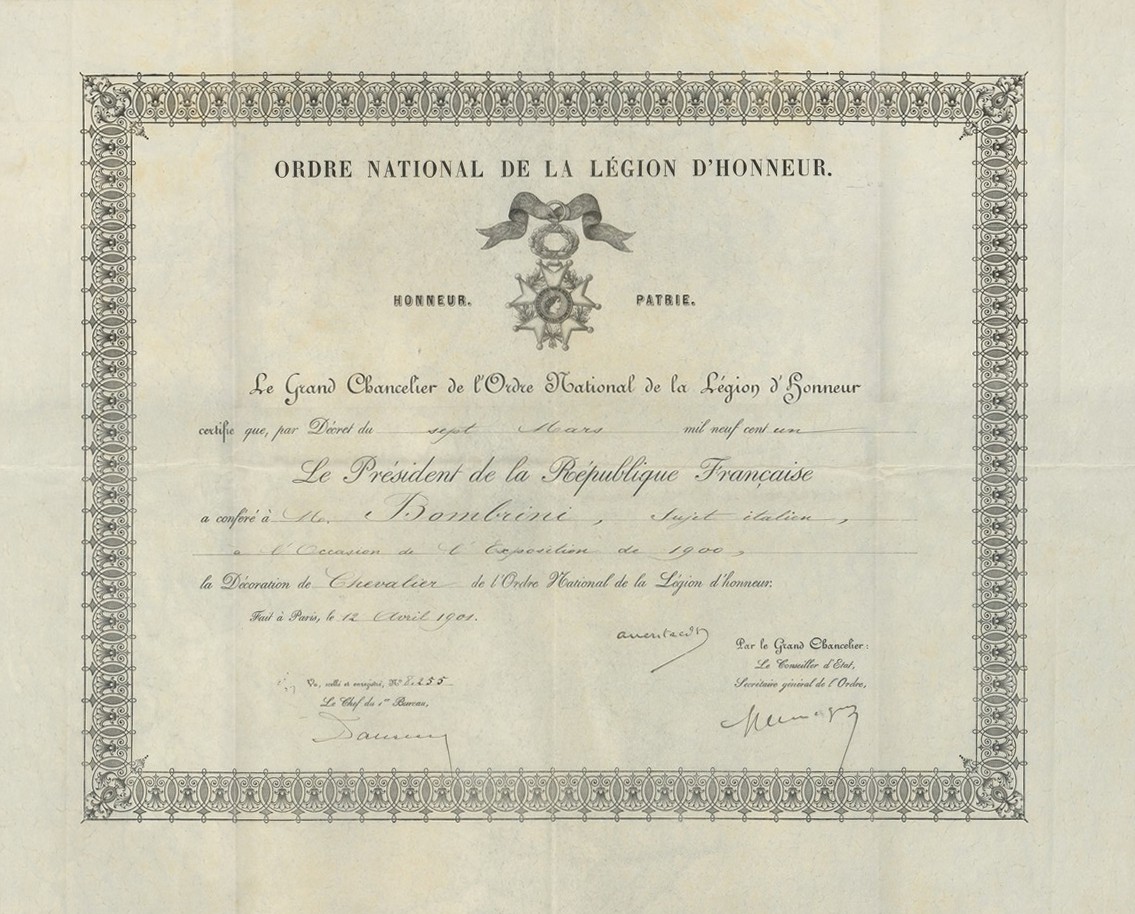 ORDRE NATIONAL DE LA LÉGION D'HONNEUR.
HONNEUR. PATRIE.
Le Grand Chancelier de l'Ordre National de la Légion d'Honneur
certifie que, par Décret du sept Mars mil neuf cent un
Le Président de la République Française
a conféré à Mr. Bombrini, Sujet italien,
à l'Occasion de l'Exposition de 1900,
la Décoration de Chevalier de l'Ordre National de la Légion d'honneur.
Fait à Paris, le 12 Avril 1901.
Par le Grand Chancelier:
Le Conseiller d'Etat,
Secrétaire général de l'Ordre,
Vu, scellé et enregistré, No 8.255
Le Chef du 1er Bureau,